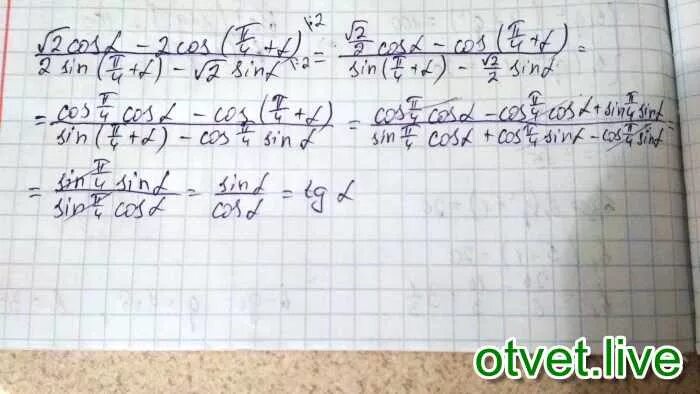 (√2 cosα − 2cos(π/4 + α)) / (2 sin(π/4 + α) − √2 sinα) |:2 |:2 = (√2/2 cosα − cos(π/4 + α)) / (sin(π/4 + α) − √2/2 sinα) =
= (cos π/4 cosα − cos(π/4 + α)) / (sin(π/4 + α) − cos π/4 sinα) = (cos π/4 cosα − cos π/4 cosα + sin π/4 sinα) / (sin π/4 cosα + cos π/4 sinα − cos π/4 sinα) =
= (sin π/4 sinα) / (sin π/4 cosα) = sinα / cosα = tg α
otvet.live